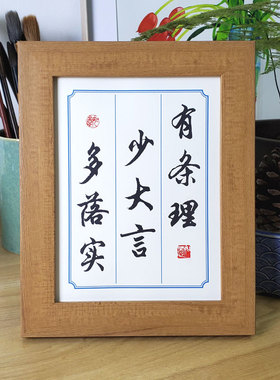 有条理
少大言
多落实